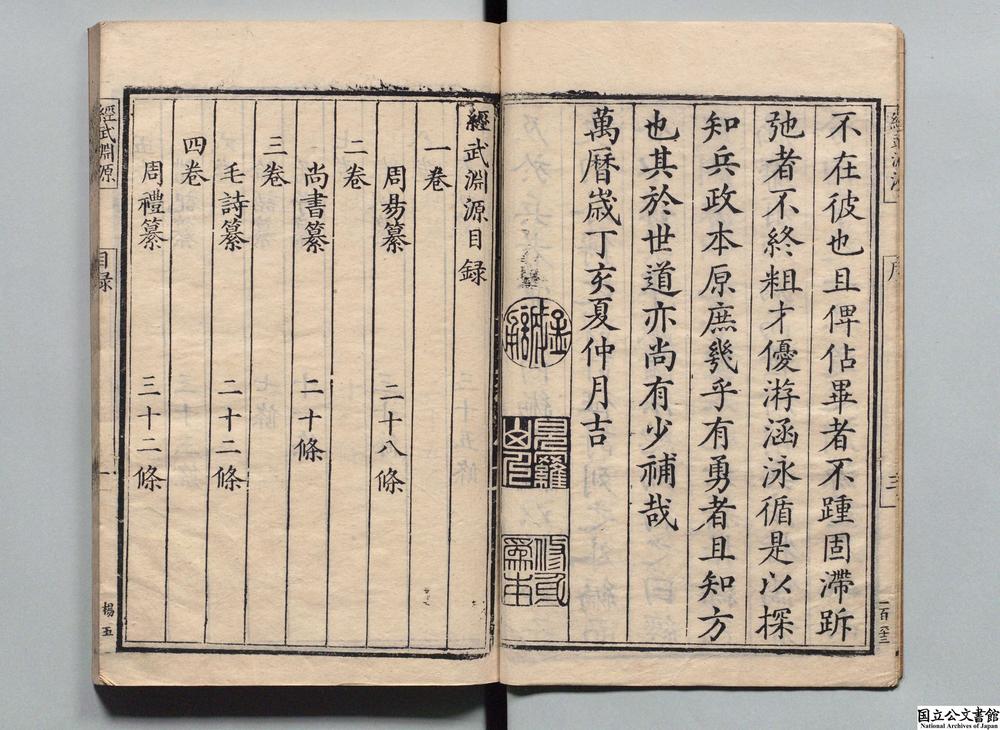 不在彼也且俾佔畢者不踵固滯跅
弛者不終粗才優游涵泳循是以探
知兵政本原庶幾乎有勇者且知方
也其於世道亦尚有少補哉
萬曆歲丁亥夏仲月吉
經武淵源目録
一卷
周易纂 二十八條
二卷
尚書纂 二十條
三卷
毛詩纂 二十二條
四卷
周禮纂 三十二條
經武淵源
目録
一
楊五
国立公文書館
National Archives of Japan